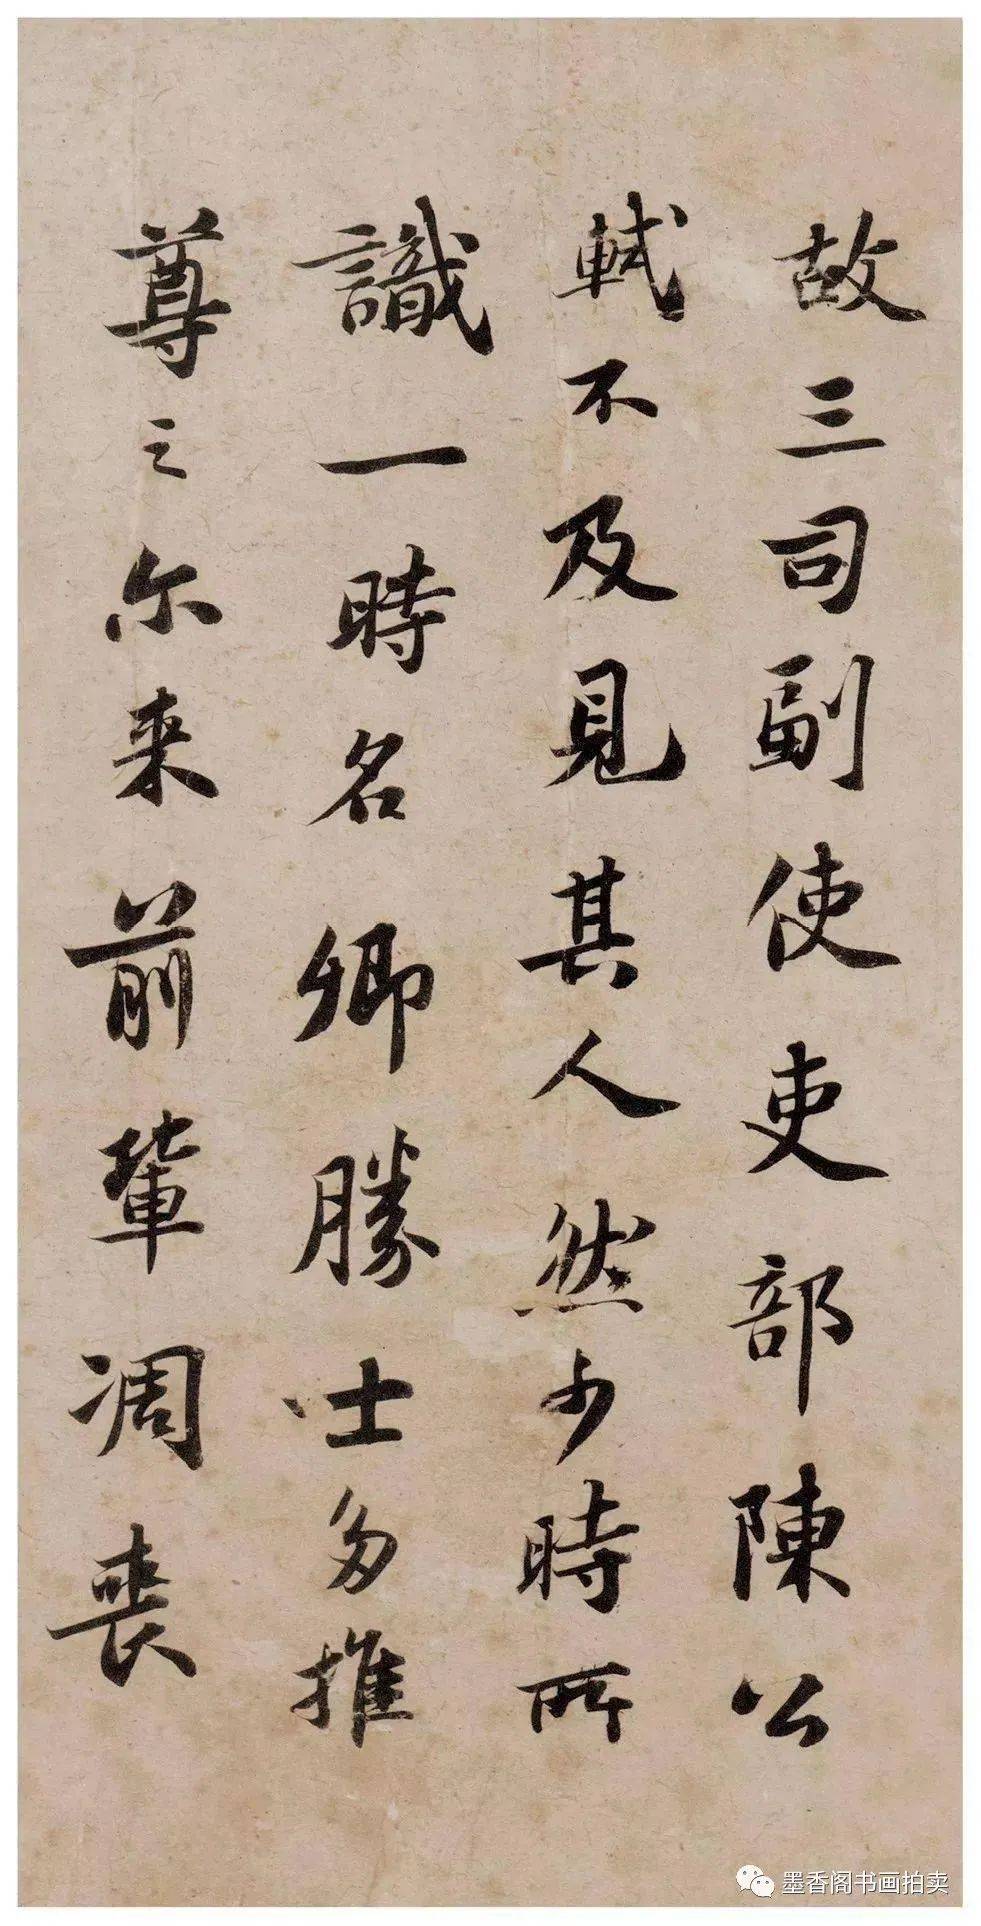 故三司副使吏部陳公
軾不及見其人然少時所
識一時名卿勝士多推
尊之尔来前輩凋喪
墨香阁书画拍卖